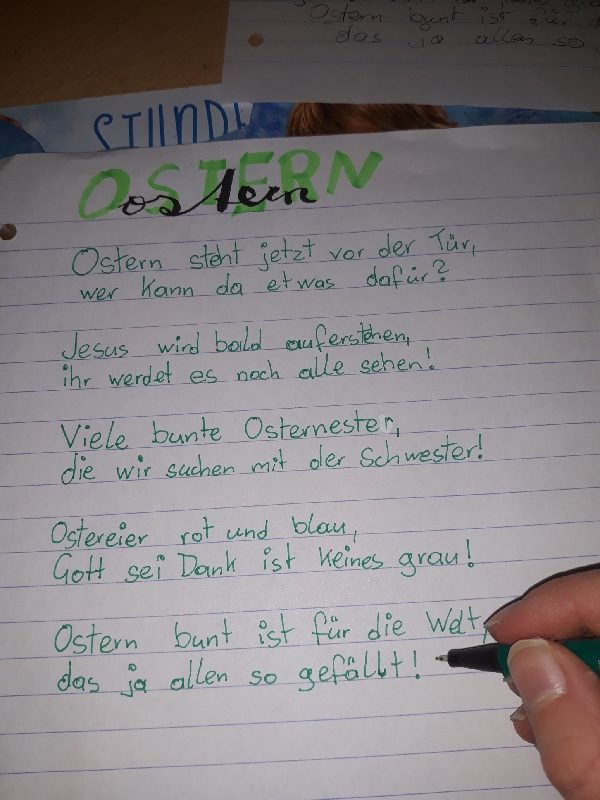 Ostern bunt ist für d
das ja allen so
STUND
OSTERN
ostern
Ostern steht jetzt vor der Tür,
wer kann da etwas dafür?
Jesus wird bald auferstehen,
ihr werdet es noch alle sehen!
Viele bunte Osternester,
die wir suchen mit der Schwester!
Ostereier rot und blau,
Gott sei Dank ist keines grau!
Ostern bunt ist für die Welt,
das ja allen so gefällt!